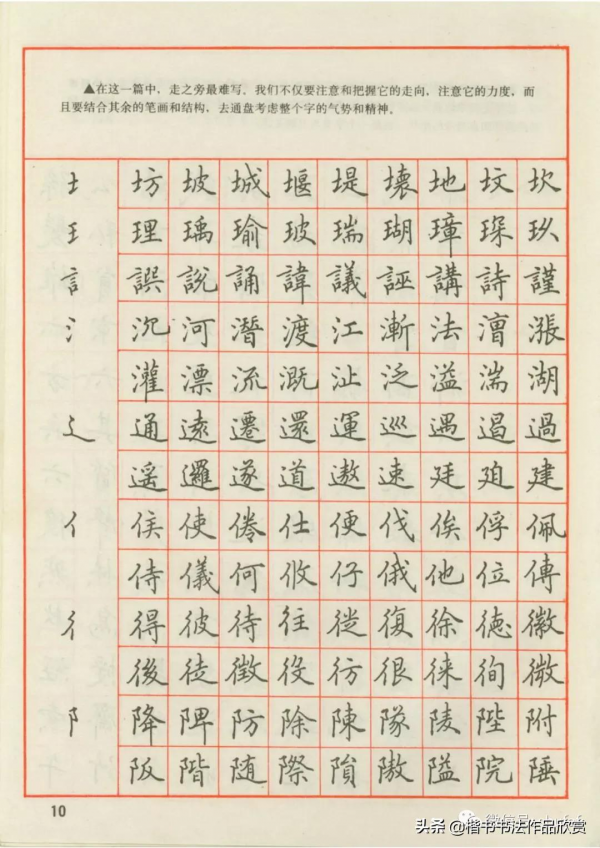 ▲在这一篇中，走之旁最难写。我们不仅要注意和把握它的走向，注意它的力度，而
且要结合其余的笔画和结构，去通盘考虑整个字的气势和精神。
土 坊 坡 城 堰 堤 壞 地 坟 坎
王 理 瑀 瑜 玻 瑞 瑚 璋 琛 玖
訁 誤 說 誦 諱 議 誣 講 詩 謹
氵 沉 河 潛 渡 江 漸 法 漕 漲
灌 漂 流 溉 沚 泛 溢 湍 湖
辶 通 遠 遷 還 運 巡 遇 遏 過
遥 邏 遂 道 遨 速 廷 廹 建
亻 侯 使 倦 仕 便 伐 俟 俘 佩
侍 儀 何 攸 仔 俄 他 位 傳
彳 得 彼 待 往 從 復 徐 德 徽
後 徒 徵 役 彷 很 徠 徇 微
阝 降 陴 防 除 陳 隊 陵 陛 附
阪 階 随 際 隕 隞 隘 院 陲
10
头条 @楷书书法作品欣赏